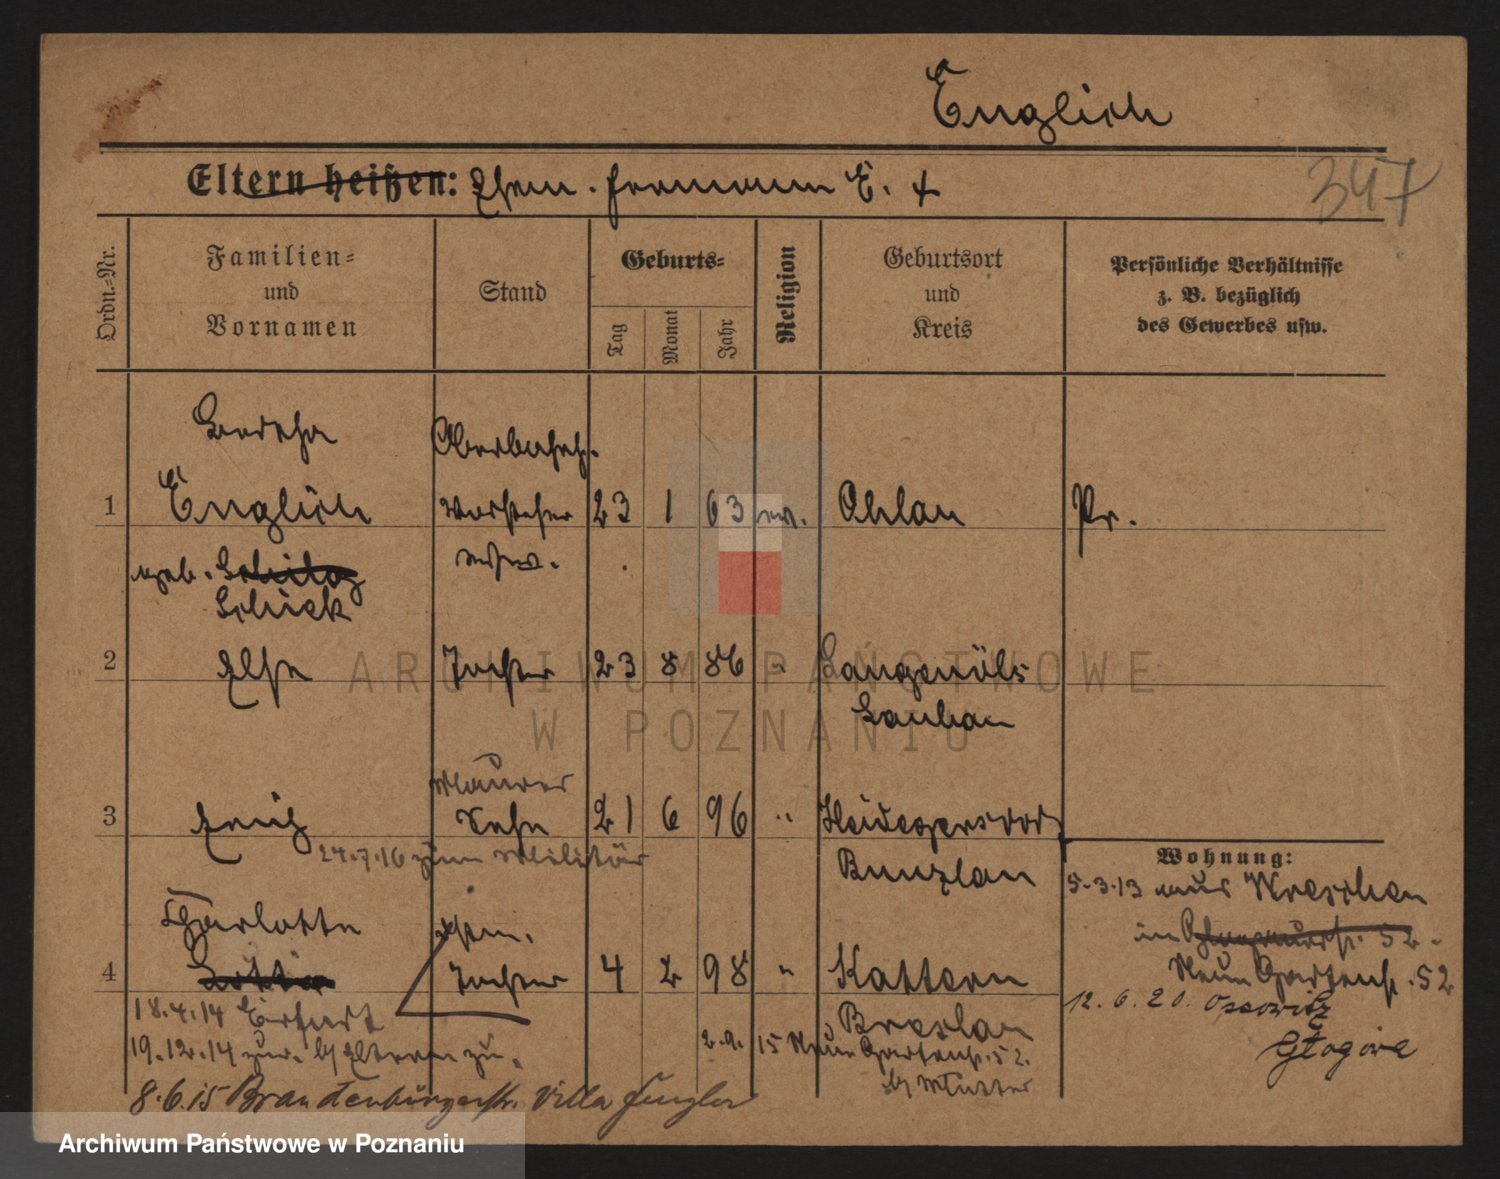 Englich
Eltern heißen: Ehem. Hermann E. †
347
Ordn.=Nr.
Familien=
und
Vornamen
Stand
Geburts=
Tag
Monat
Jahr
Religion
Geburtsort
und
Kreis
Persönliche Verhältnisse
z. B. bezüglich
des Gewerbes usw.
Bertha
Oberbahnh.
1 Englich Vorsteher 23 1 63 ev. Ohlau Pr.
geb. Witwe.
Schick
2 Else Tochter 23 8 86 " Langenöls
Lauban
Maurer
3 Sohn 21 6 96 " Heidegersdorf
24.7.16 zum Militär
Bunzlau
Wohnung:
5.3.13 aus Wreschen
Charlotte
in 52.
4 Tochter 4 2 98 " Kattern
Neue Gartenstr. 52
18.4.14 Erfurt
Breslau
12.6.20. Ossowitz
19.12.14 zur. b/ Eltern zu.
2.9.15 Neue Gartenstr. 52.
Głogowa
b/ Mutter
8.6.15 Brandenburgerstr. Villa
ARCHIWUM PAŃSTWOWE
W POZNANIU
Archiwum Państwowe w Poznaniu